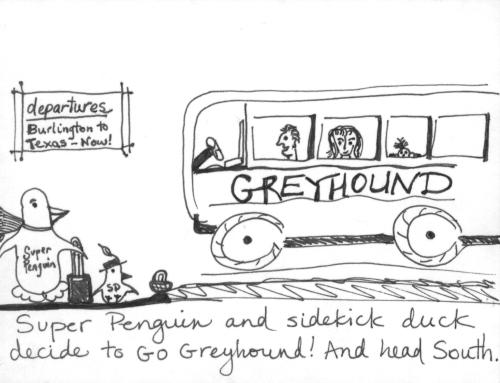 departures
Burlington to
Texas - Now!
GREYHOUND
Super
Penguin
SD
Super Penguin and sidekick duck
decide to Go Greyhound! And head South.